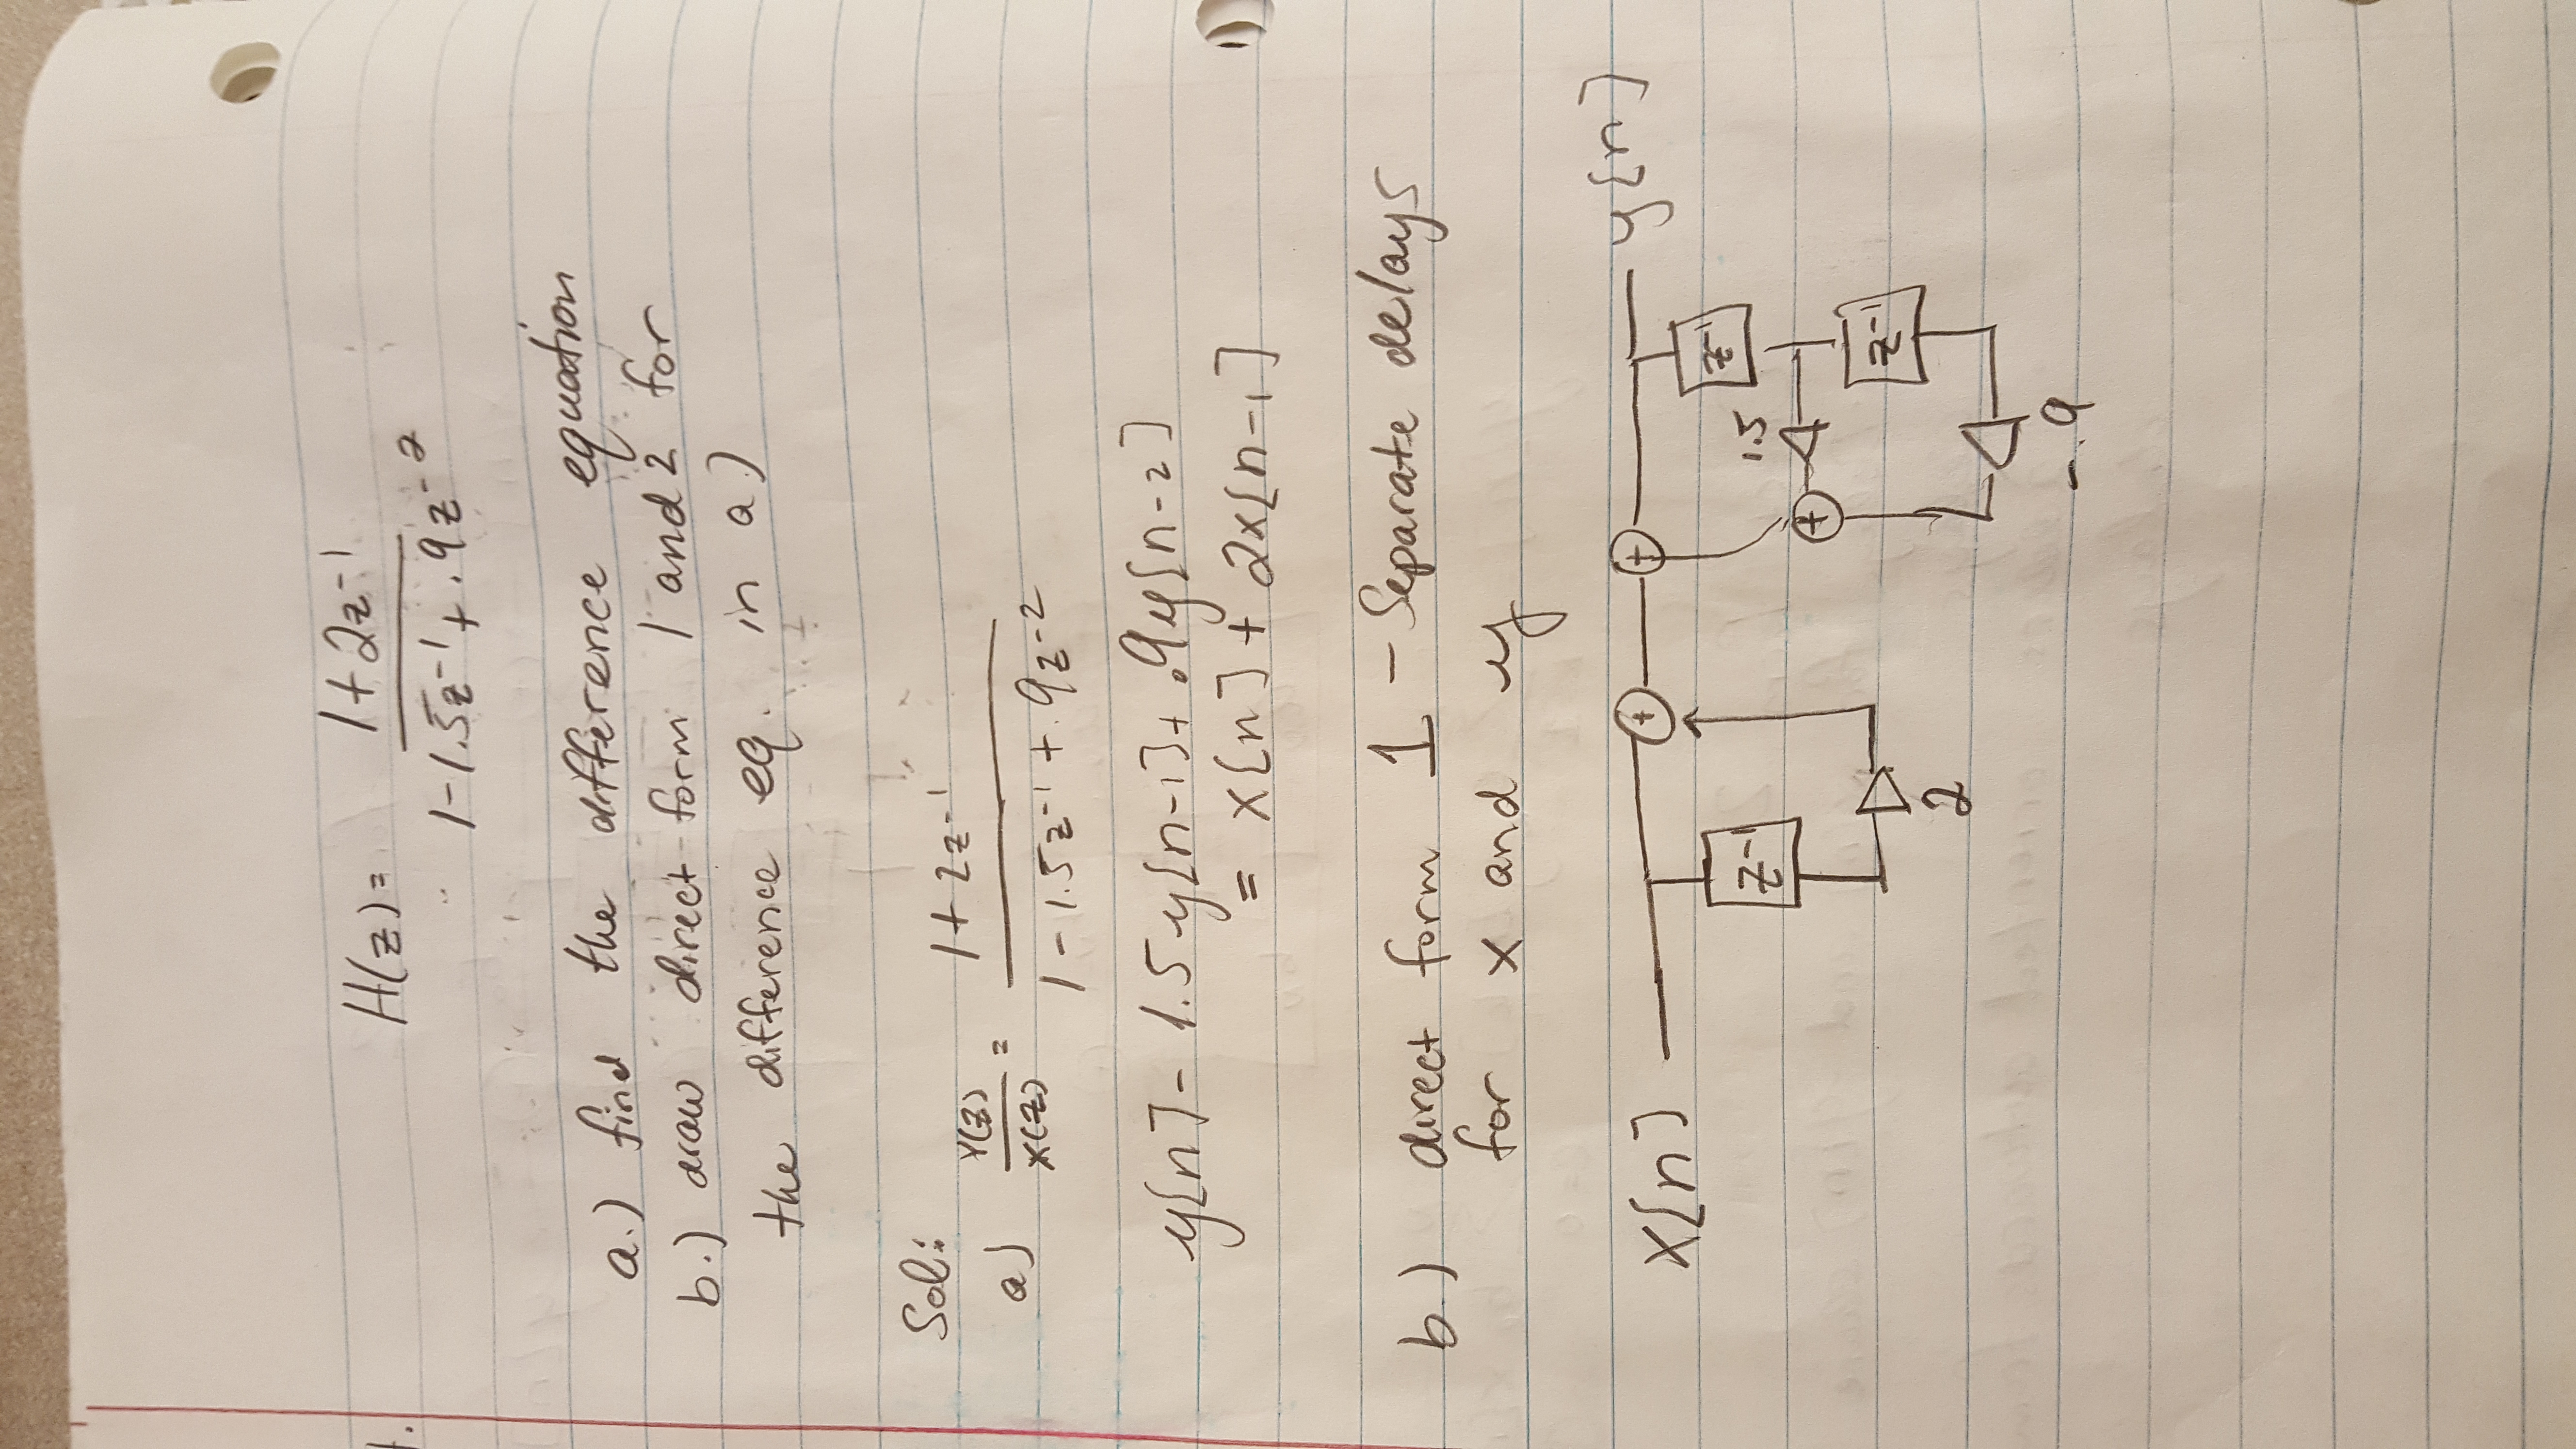 H(z) = 1+2z⁻¹
1-1.5z⁻¹+.9z⁻²
a.) find the difference equation
b.) draw direct form 1 and 2 for
the difference eq. in a)
Sol:
a) Y(z)/X(z) = 1+2z⁻¹
1-1.5z⁻¹+.9z⁻²
y[n]-1.5y[n-1]+.9y[n-2]
= x[n]+2x[n-1]
b.) direct form 1 - Separate delays
for x and y
x[n] + + y[n]
z⁻¹ z⁻¹
1.5
+
2 z⁻¹
-.9